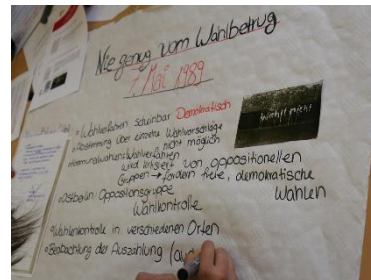 Nie genug vom Wahlbetrug
7. Mai 1989
Wahlverfahren scheinbar Demokratisch
Abstimmung über einzelne Wahlvorschläge
nicht möglich
Kommunalwahlen: Wahlverfahren
wird kritisiert von oppositionellen
Gruppen → fordern freie, demokratische
Wahlen
Ostberlin: Oppositionsgruppe
Wahlkontrolle
Wahlkontrolle in verschiedenen Orten
Beobachtung der Auszählung
Wählt nicht